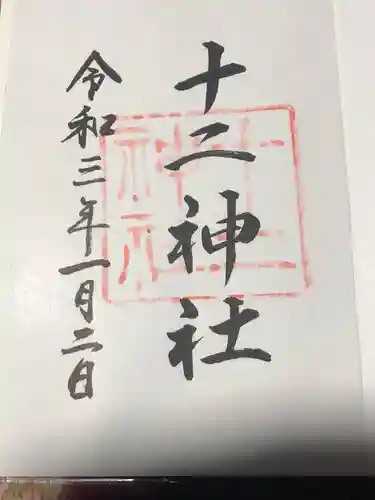 十二神社
令和三年一月二日